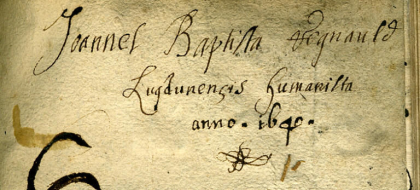 Joannes Baptista Regnauld
Lugdunensis humanista
anno. 1640.